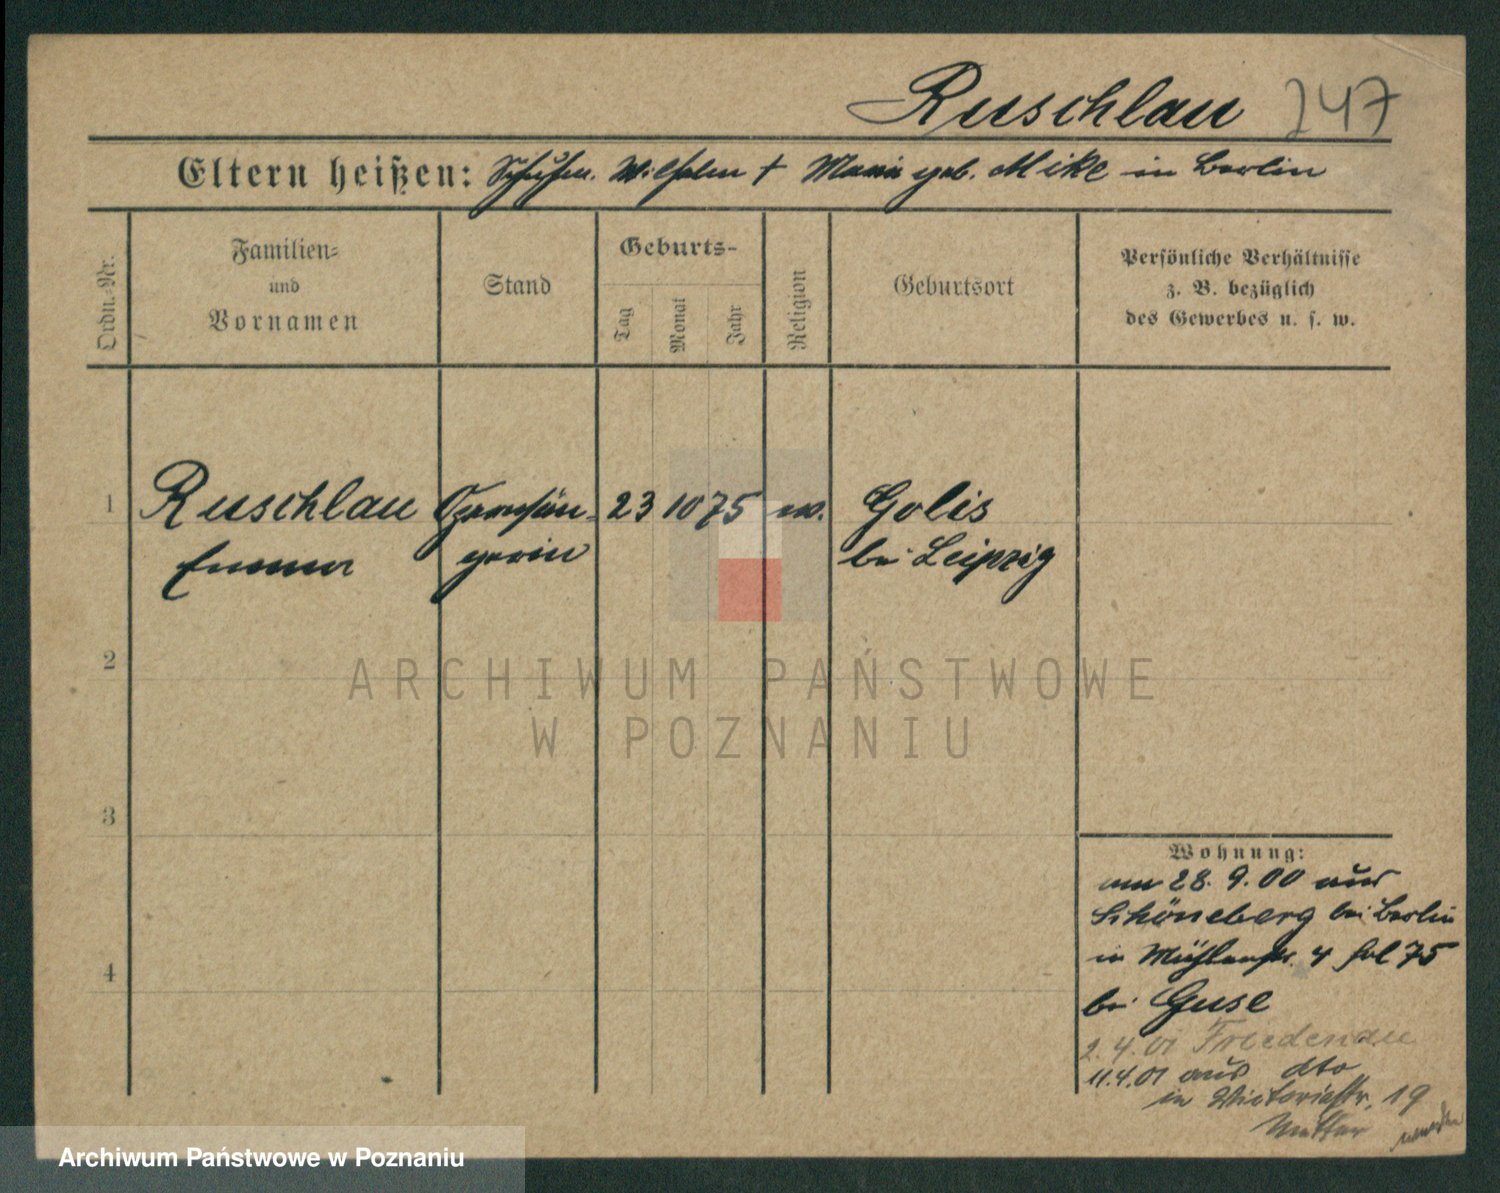 Ruschlau 247
Eltern heißen: Wilhelm † Maria geb. Mike in Berlin
Ordn.-Nr.
Familien-
und
Vornamen
Stand
Geburts-
Tag
Monat
Jahr
Religion
Geburtsort
Persönliche Verhältnisse
z. B. bezüglich
des Gewerbes u. s. w.
1 Ruschlau Opernsän- 23 10 75 ev. Golis
Emma gerin bei Leipzig
2
ARCHIWUM PAŃSTWOWE
W POZNANIU
3
4
Wohnung:
am 28. 9. 00 aus
Schöneberg bei Berlin
in Mühlenstr. 4 fol 75
bei Guse
2. 4. 01 Friedenau
11.4.01 aus dto
in Victoriastr. 19
Archiwum Państwowe w Poznaniu